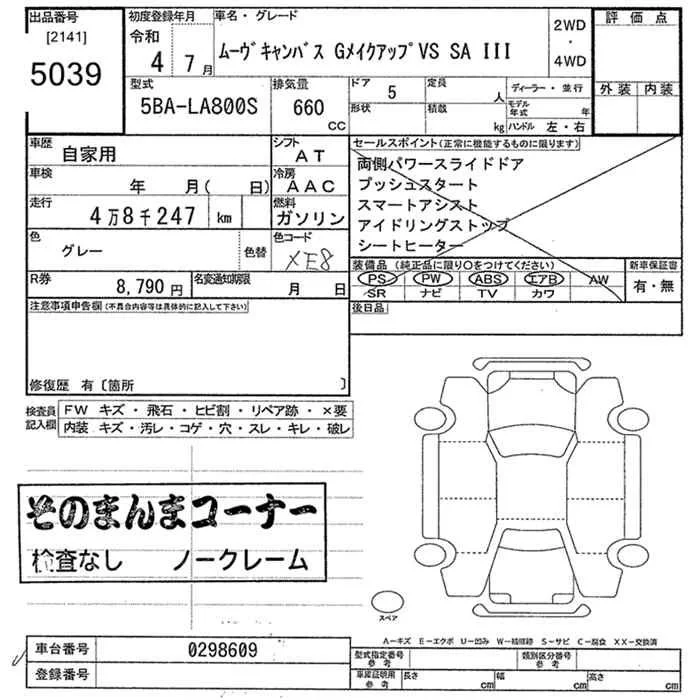 出品番号
[2141]
5039
初度登録年月
令和
4 7月
車名・グレード
ムーヴキャンバス GメイクアップVS SA III
2WD
・
4WD
評価点
外装 内装
型式
5BA-LA800S
排気量
660
CC
ドア
5
定員
人
形状
積載
kg
ディーラー・並行
モデル年式
年
ハンドル 左・右
車歴
自家用
シフト
AT
車検
年 月( 日)
冷房
AAC
走行
4万8千247 km
燃料
ガソリン
色
グレー
色替
色コード
XE8
R券
8,790円
名変通知期限
月 日
セールスポイント(正常に機能するものに限ります)
両側パワースライドドア
プッシュスタート
スマートアシスト
アイドリングストップ
シートヒーター
装備品 (純正品に限り○をつけてください)
PS PW ABS エアB AW
SR ナビ TV カワ
新車保証書
有・無
後日品
注意事項申告欄 (不具合内容等は具体的に記入して下さい)
修復歴 有〔箇所 〕
検査員記入欄
FW キズ・飛石・ヒビ割・リペア跡・×要
内装 キズ・汚レ・コゲ・穴・スレ・キレ・破レ
そのまんまコーナー
検査なし ノークレーム
スペア
A―キズ E―エクボ U―凹み W―補修跡 S―サビ C―腐食 XX―交換済
車台番号
0298609
登録番号
型式指定番号
参考
類別区分番号
参考
車庫証明用
参考
長さ
cm
幅
cm
高さ
cm